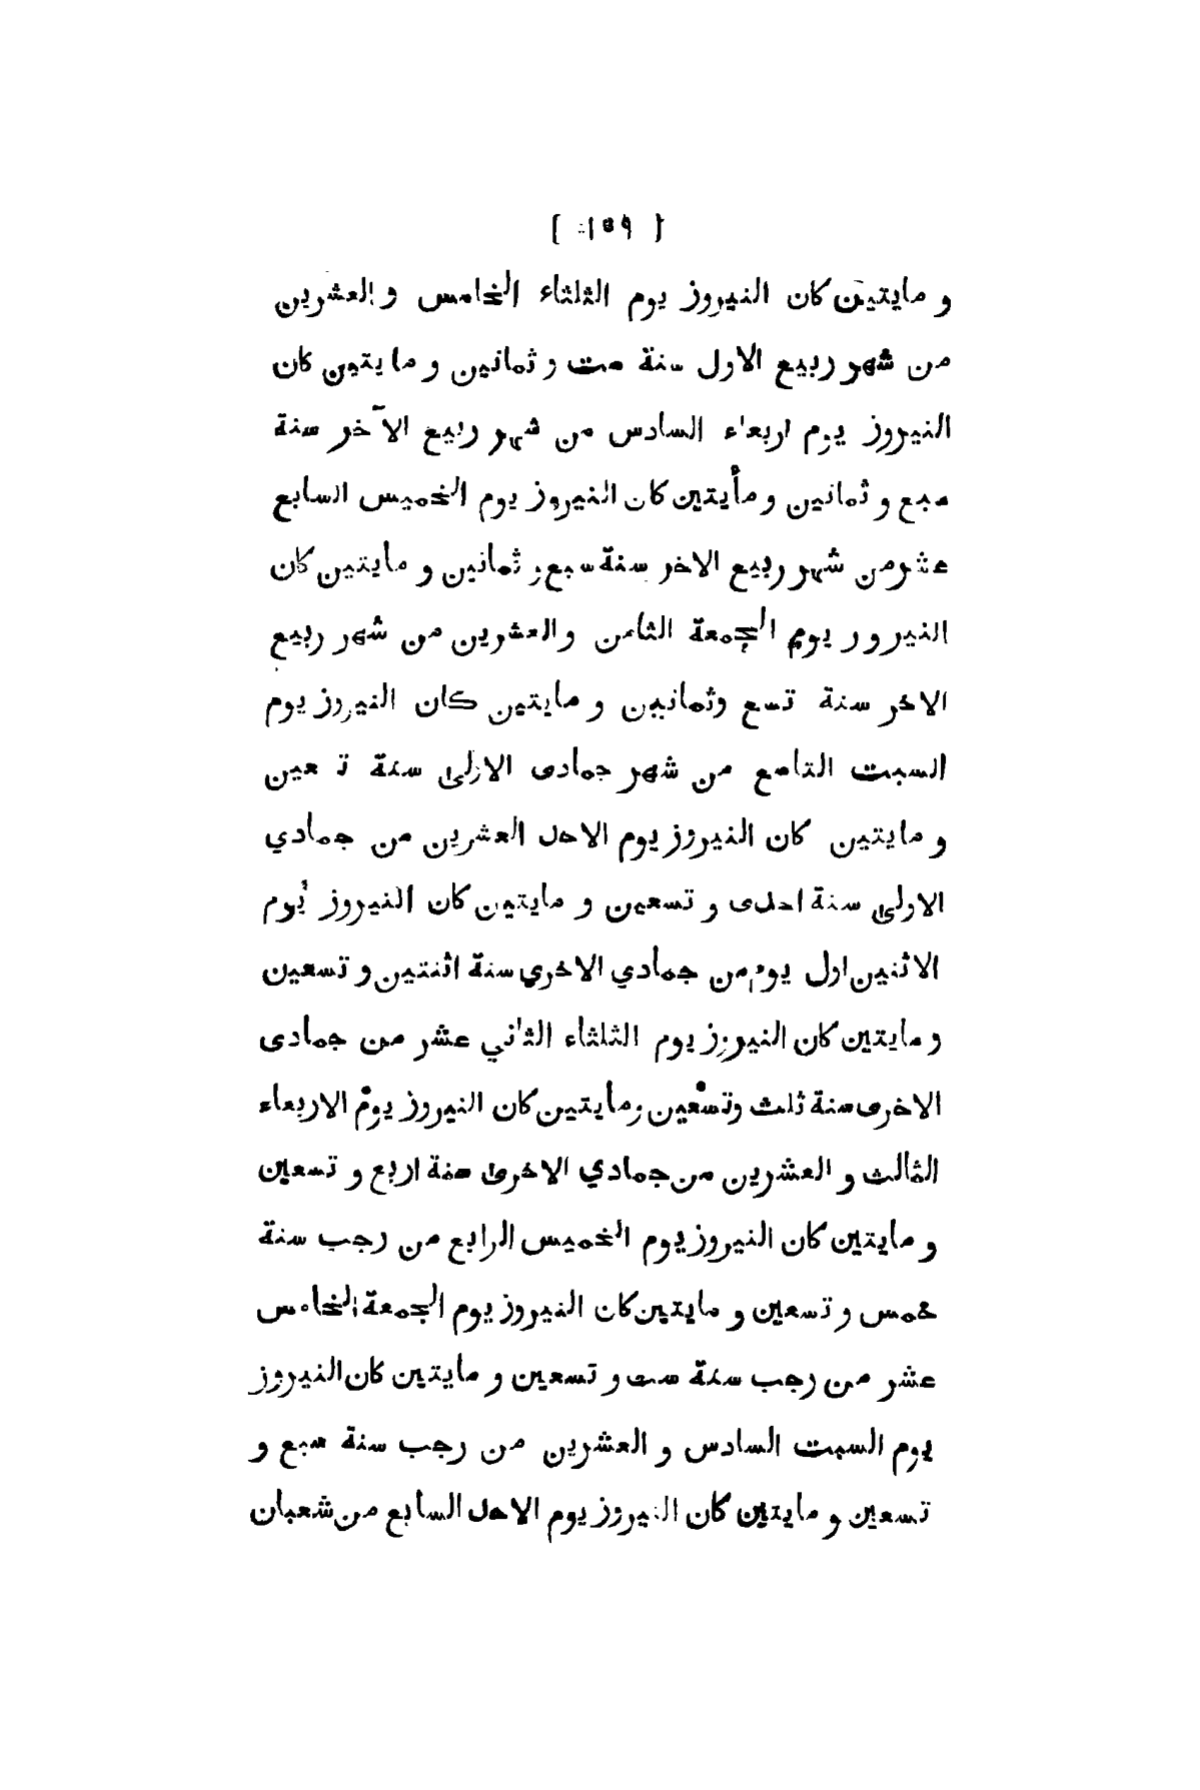 [ ١٥٩ ]
و مايتين كان النيروز يوم الثلثاء الخامس و العشرين
من شهر ربيع الاول سنة ست و ثمانين و مايتين كان
النيروز يوم اربعاء السادس من شهر ربيع الآخر سنة
سبع و ثمانين و مأيتين كان النيروز يوم الخميس السابع
عشر من شهر ربيع الاخر سنة سبع و ثمانين و مايتين كان
النيرور يوم الجمعة الثامن والعشرين من شهر ربيع
الاخر سنة تسع وثمانين و مايتين كان النيروز يوم
السبت التاسع من شهر جمادى الاولى سنة ت عين
و مايتين كان النيروز يوم الاحد العشرين من جمادي
الاولى سنة احدى و تسعين و مايتين كان النيروز يوم
الاثنين اول يوم من جمادي الاخري سنة اثنتين و تسعين
و مايتين كان النيروز يوم الثلثاء الثاني عشر من جمادى
الاخرى سنة ثلث وتسعين ومايتين كان النيروز يوم الاربعاء
الثالث و العشرين من جمادي الاخرى سنة اربع و تسعين
و مايتين كان النيروز يوم الخميس الرابع من رجب سنة
خمس و تسعين و مايتين كان النيروز يوم الجمعة الخامس
عشر من رجب سنة ست و تسعين و مايتين كان النيروز
يوم السبت السادس و العشرين من رجب سنة سبع و
تسعين و مايتين كان النيروز يوم الاحد السابع من شعبان